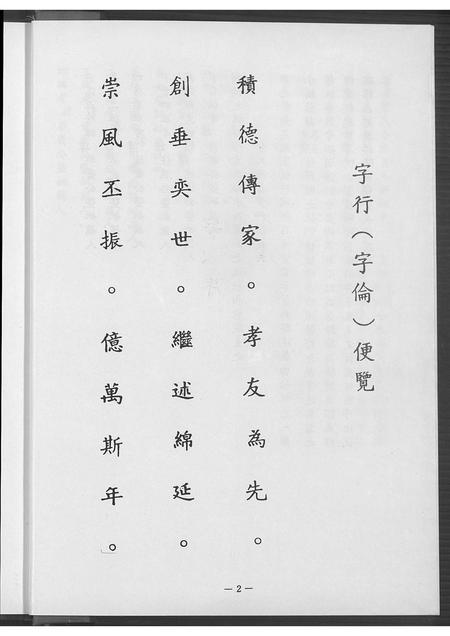 字行（字倫）便覽
積德傳家。孝友為先。
創垂奕世。繼述綿延。
崇風丕振。億萬斯年。」
—2—